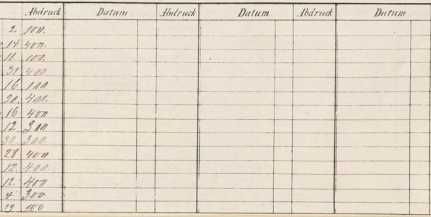 Abdruck Datum Abdruck Datum Abdruck Datum
2. 100.
14 400.
11. 100.
31. 400
16. 100
20. 400.
16. 400
12. 300.
30. 300.
28 400
12. 400
12. 400
4. 300
29 100